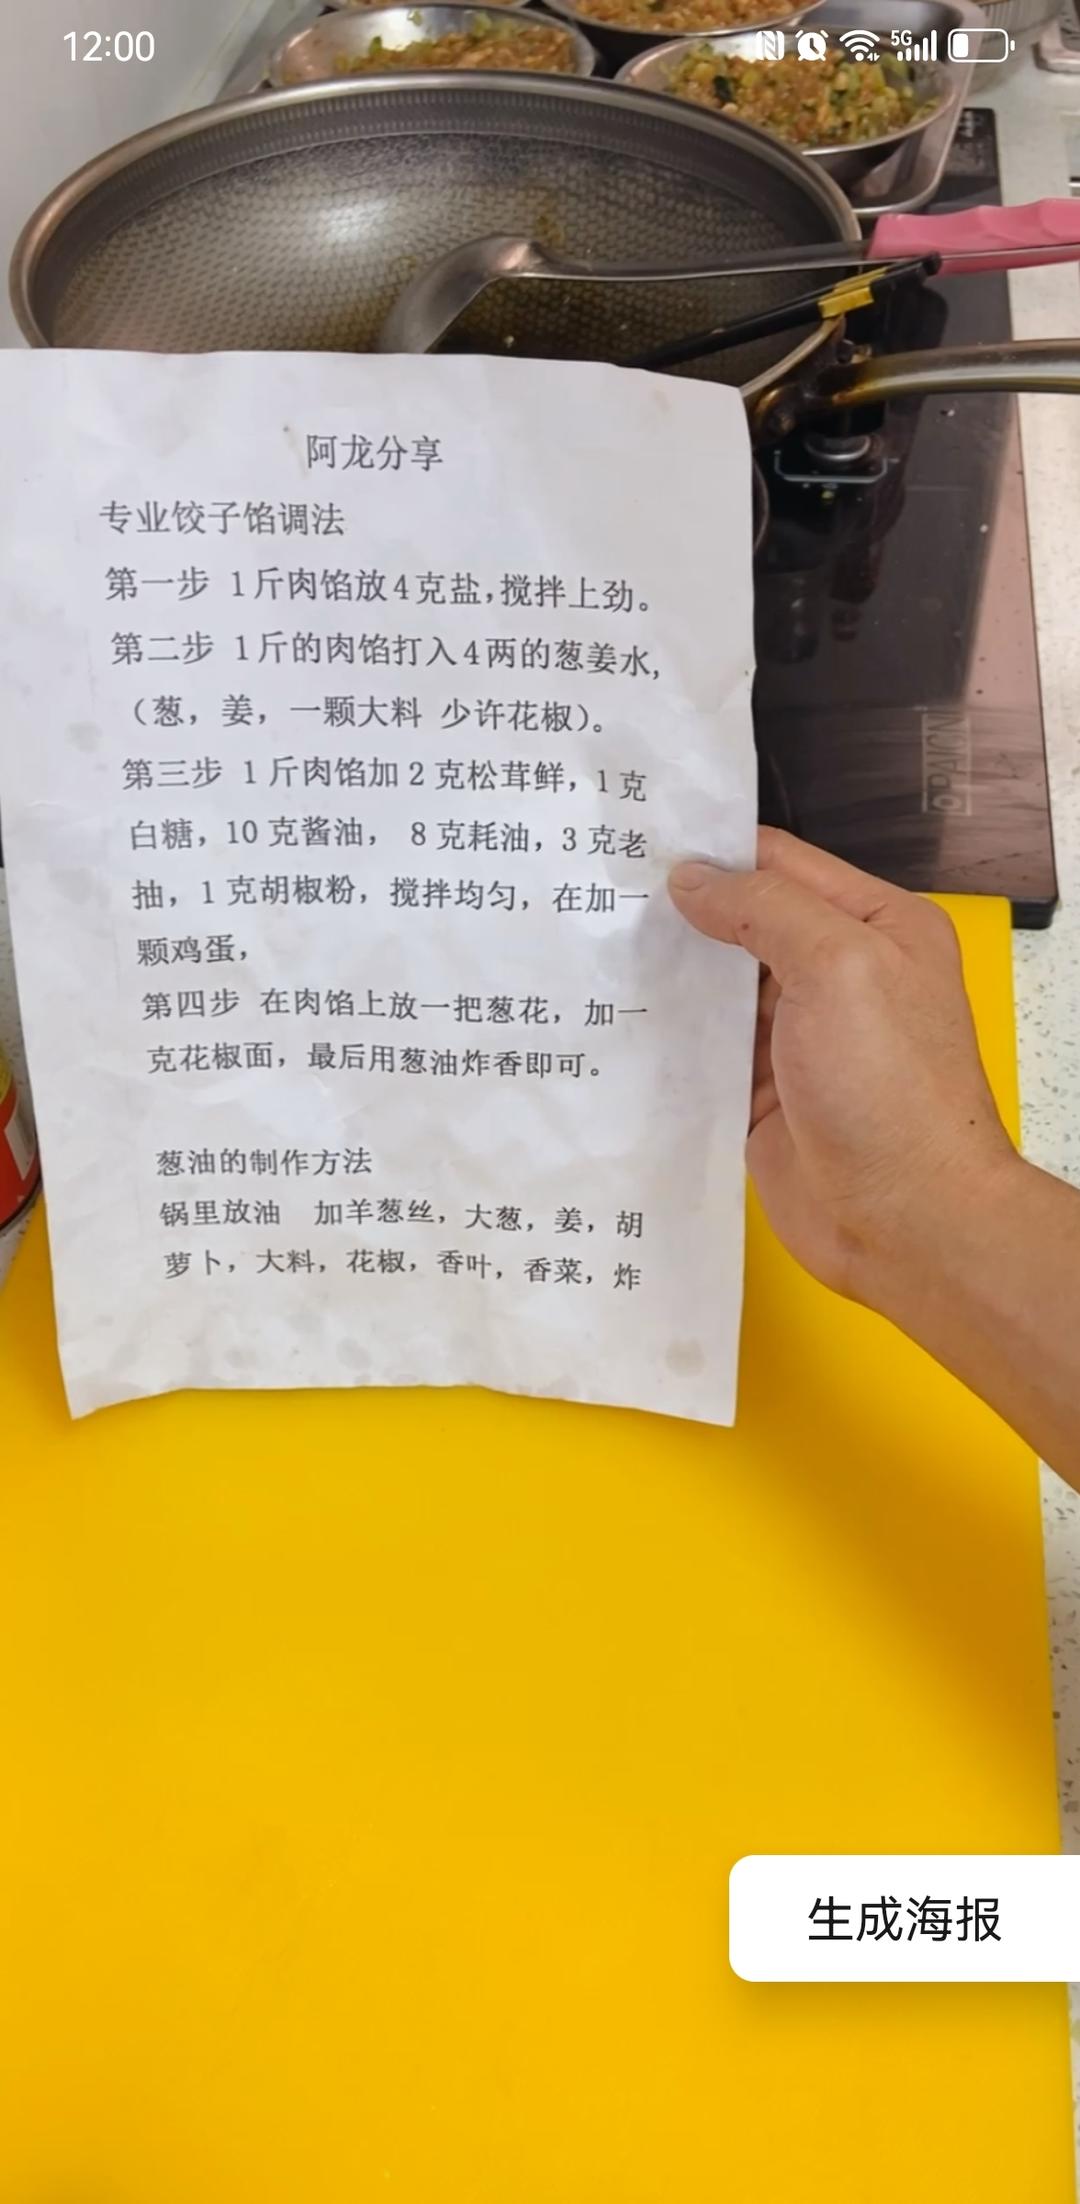 12:00
5G
阿龙分享
专业饺子馅调法
第一步 1斤肉馅放4克盐,搅拌上劲。
第二步 1斤的肉馅打入4两的葱姜水,
（葱，姜，一颗大料 少许花椒）。
第三步 1斤肉馅加2克松茸鲜，1克
白糖，10克酱油， 8克耗油，3克老
抽，1克胡椒粉，搅拌均匀，在加一
颗鸡蛋，
第四步 在肉馅上放一把葱花，加一
克花椒面，最后用葱油炸香即可。
葱油的制作方法
锅里放油 加羊葱丝，大葱，姜，胡
萝卜，大料，花椒，香叶，香菜，炸
生成海报